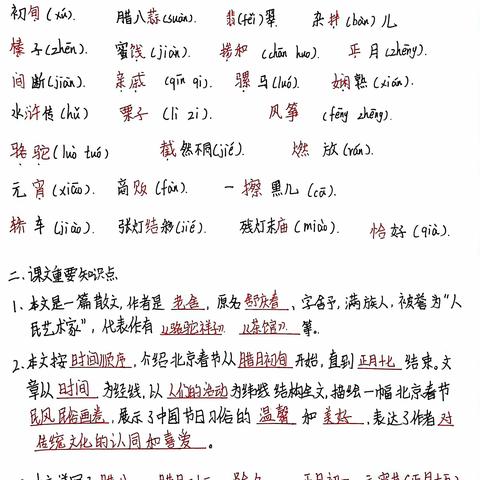 初旬(xún). 腊八蒜(suàn). 翡(fěi)翠. 杂拌(bàn)儿
榛子(zhēn). 蜜饯(jiàn). 搀和(chān huo). 正月(zhēng)
间断(jiàn). 亲戚(qīn qi). 骡马(luó). 娴熟(xián).
水浒传(hǔ) 栗子(lì zi). 风筝(fēng zheng).
骆驼(luò tuó) 截然不同(jié). 燃放(rán).
元宵(xiāo). 高贩(fàn). 一擦黑儿(cā).
轿车(jiào). 张灯结彩(jié). 残灯末庙(miào). 恰好(qià).
二、课文重要知识点
1、本文是一篇散文,作者是老舍,原名舒庆春、字舍予,满族人,被誉为“人
民艺术家”,代表作有《骆驼祥子》《茶馆》等。
2、本文按时间顺序,介绍北京春节从腊月初旬开始,直到正月十九结束。文
章以时间为经线,以人们的活动为纬线结构全文,描绘一幅北京春节
民风民俗画卷,展示了中国节日习俗的温馨和美好,表达了作者对
传统文化的认同和喜爱。